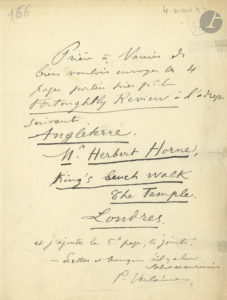 166
4
Prière à Vanier de
bien vouloir envoyer les 4
pages
Fortnightly Review à l'adresse
suivant
Angleterre.
Mr Herbert Horne,
King's bench walk
The Temple
Londres.
et j'ajoute la 5e page, ci-jointe.
P. Verlaine